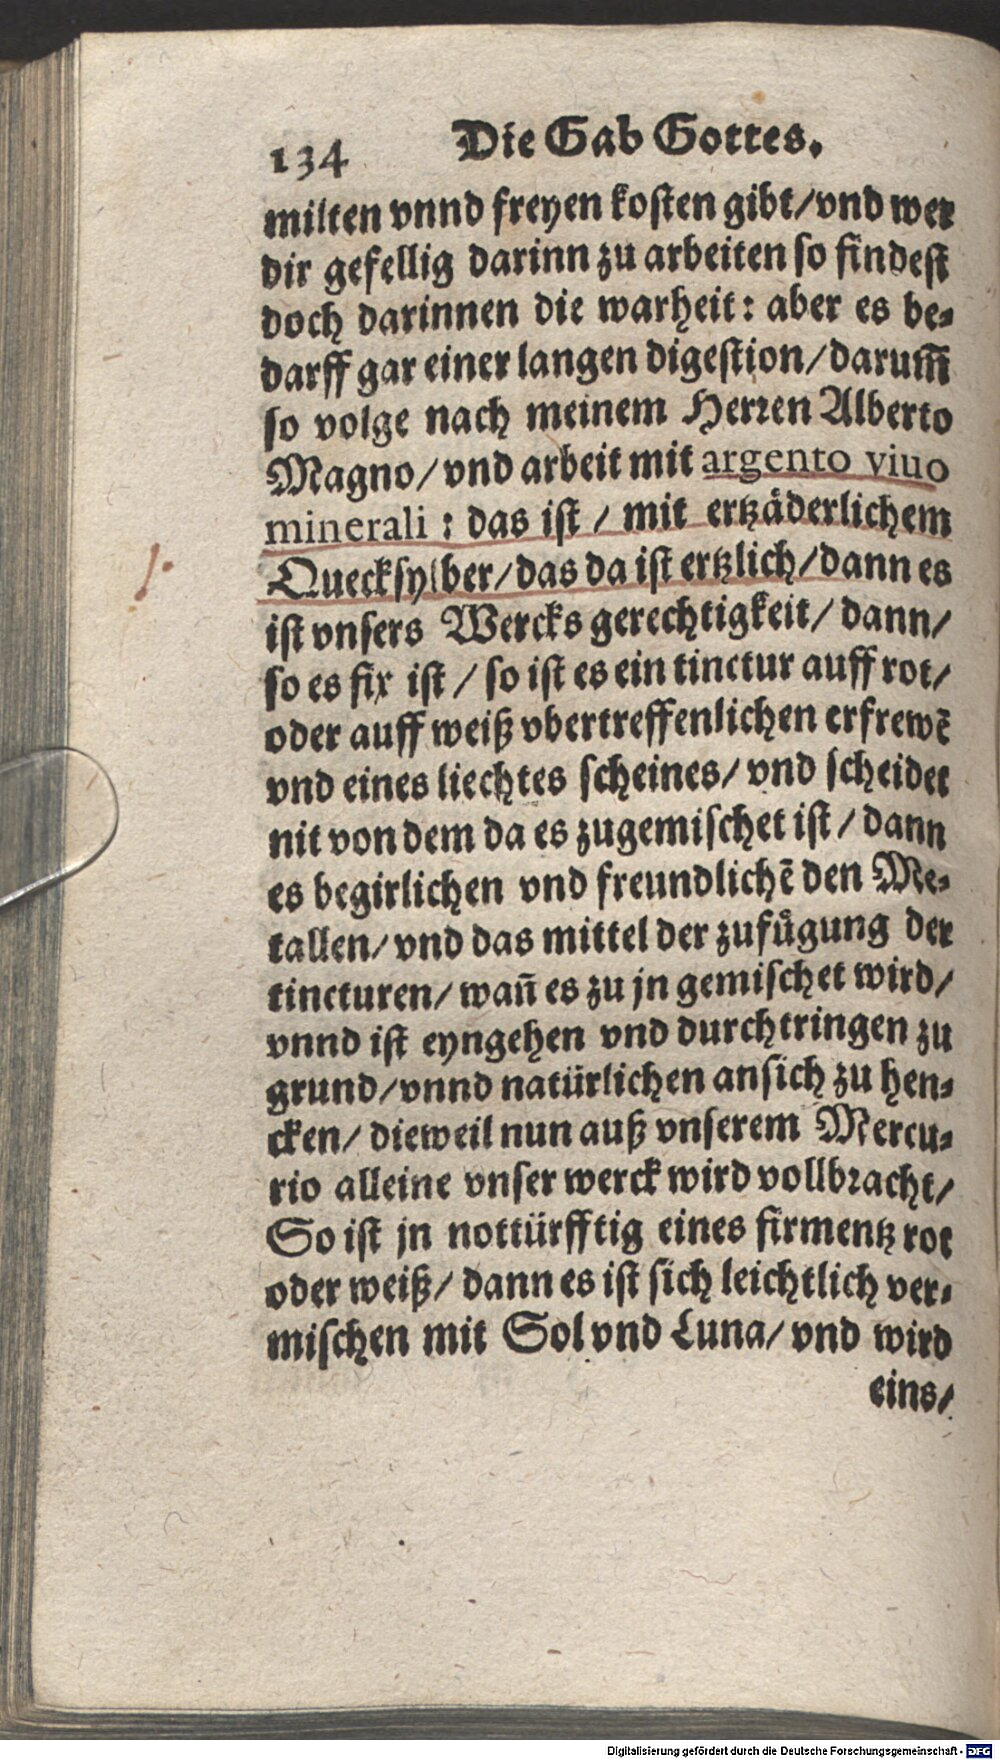 134 Die Gab Gottes.
milten vnnd freyen kosten gibt/vnd wer
dir gefellig darinn zu arbeiten so findest
doch darinnen die warheit: aber es be-
darff gar einer langen digestion/darum̃
so volge nach meinem Herren Alberto
Magno/vnd arbeit mit argento viuo
minerali: das ist / mit ertzåderlichem
Quecksylber/das da ist ertzlich/dann es
ist vnsers Wercks gerechtigkeit/ dann/
so es fix ist / so ist es ein tinctur auff rot/
oder auff weiß vbertreffenlichen erfrewẽ
vnd eines liechtes scheines/ vnd scheidet
nit von dem da es zugemischet ist / dann
es begirlichen vnd freundlichẽ den Me-
tallen/ vnd das mittel der zufůgung der
tincturen/ wañ es zu jn gemischet wird/
vnnd ist eyngehen vnd durchtringen zu
grund/vnnd natürlichen ansich zu hen-
cken/ dieweil nun auß vnserem Mercu-
rio alleine vnser werck wird vollbracht/
So ist jn nottürfftig eines firmentz rot
oder weiß/ dann es ist sich leichtlich ver-
mischen mit Sol vnd Luna/ vnd wird
eins/
Digitalisierung gefördert durch die Deutsche Forschungsgemeinschaft - DFG